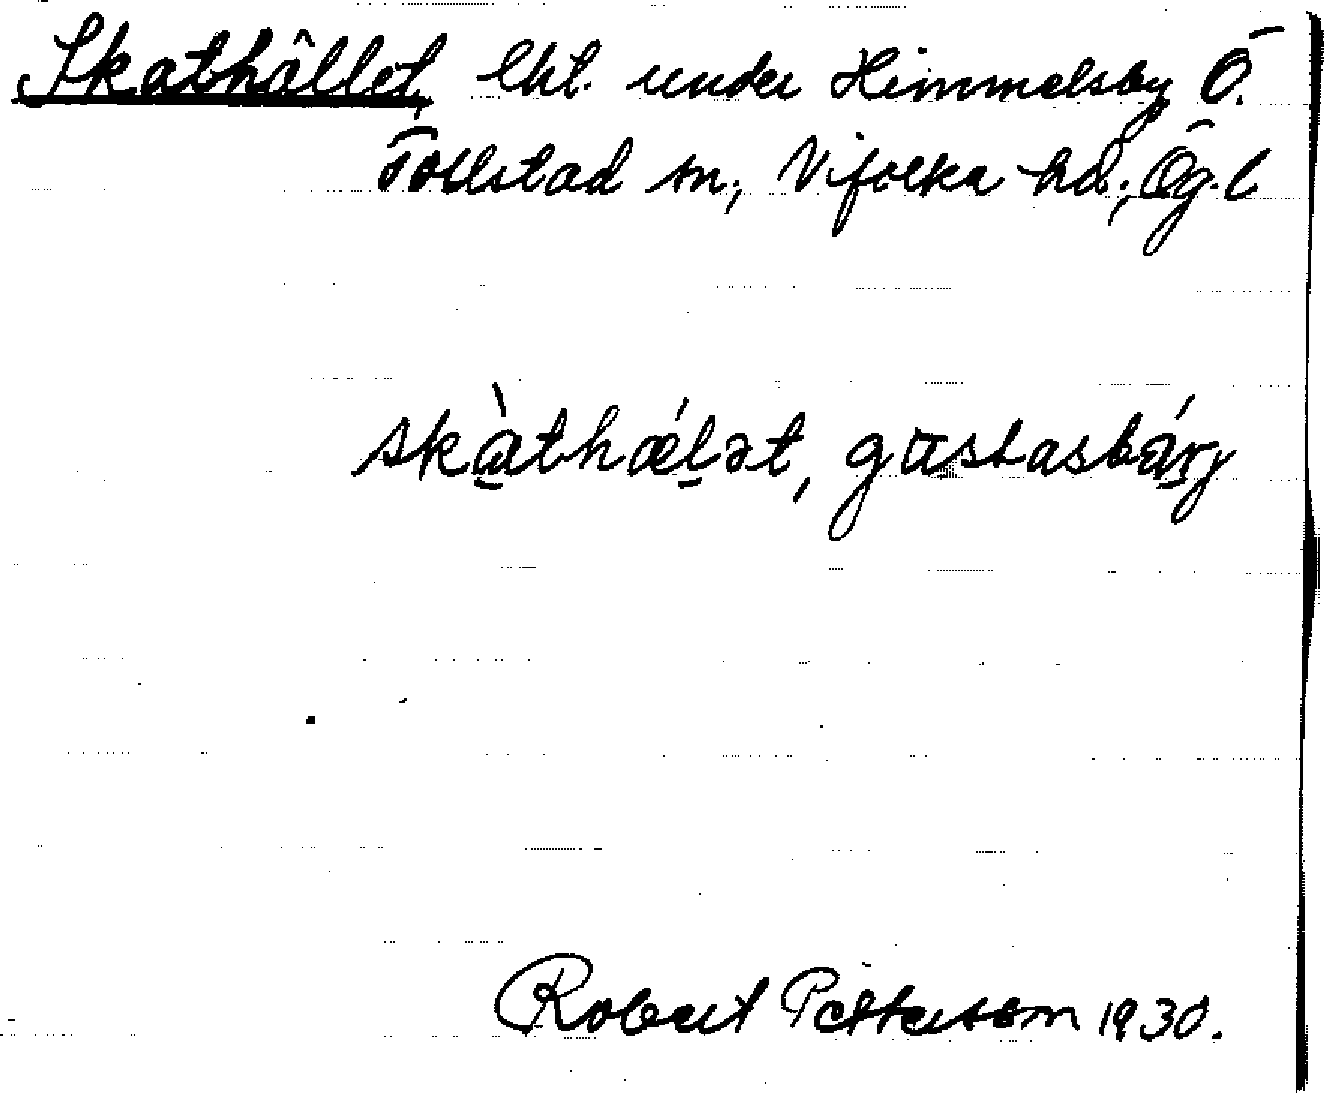 Skathället, lht. under Himmelsby Ö.
Tollstad sn, Vifolka hd, Ög. l
skàthǽlət, gustasbárj
Robert Pettersson 1930.